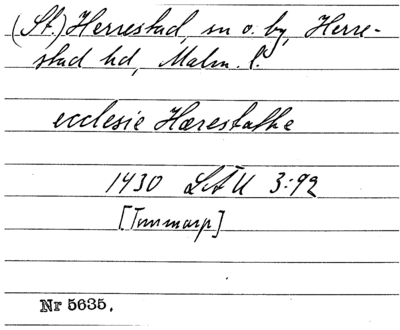 (St.) Herrestad, sn o. by, Herre-
stad hd, Malm. l.
ecclesie Hærestathe
1430 LÄU 3:92
[Tommarp]
Nr 5635.